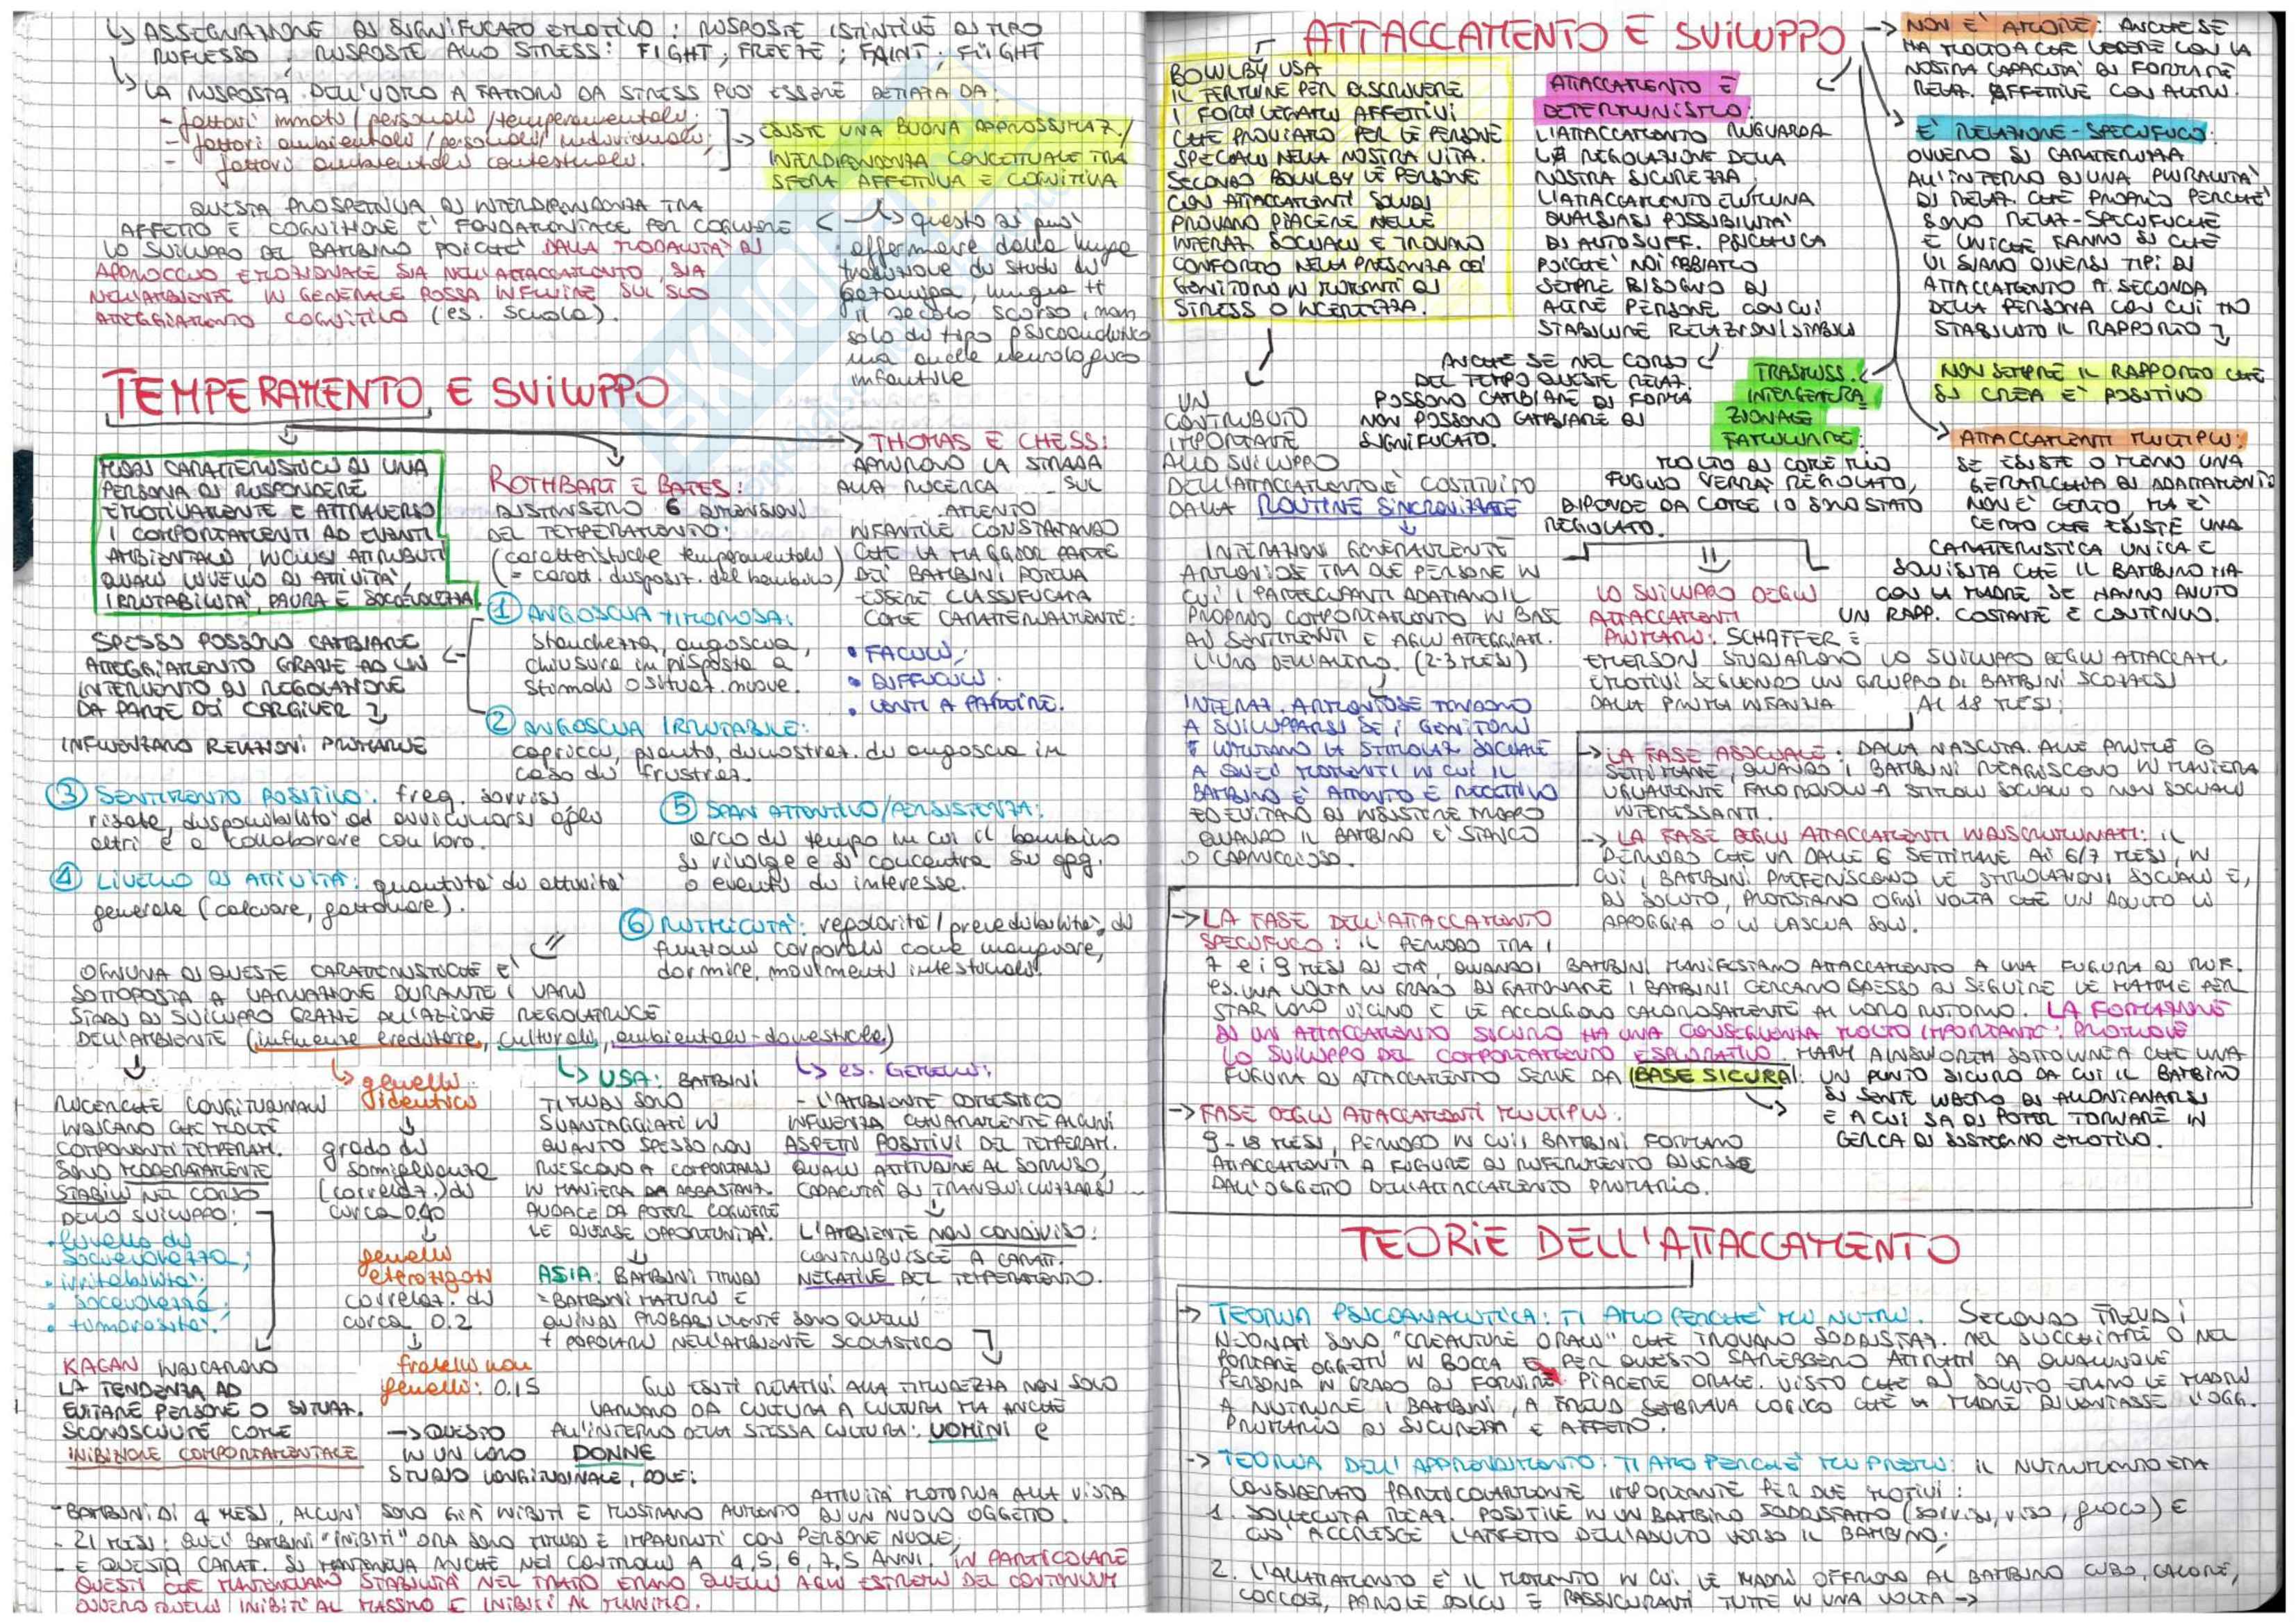 ↳ ASSEGNAZIONE DI SIGNIFICATO EMOTIVO: RISPOSTE ISTINTIVE DI TIPO
RIFLESSO; RISPOSTE ALLO STRESS: FIGHT; FREEZE; FAINT; FLIGHT
↳ LA RISPOSTA DELL'UOMO A FATTORI DA STRESS PUÒ ESSERE DETTATA DA:
- fattori innati/personali/temperamentali;
- fattori ambientali/personali/individuali;
- fattori ambientali contestuali.
-> ESISTE UNA BUONA APPROSSIMAZ./
INTERDIPENDENZA CONCETTUALE TRA
SFERA AFFETTIVA E COGNITIVA
QUESTA PROSPETTIVA DI INTERDIPENDENZA TRA
AFFETTO E COGNIZIONE È FONDAMENTALE PER COGLIERE
LO SVILUPPO DEL BAMBINO POICHÉ DALLA MODALITÀ DI
APPROCCIO EMOZIONALE SIA NELL'ATTACCAMENTO, SIA
NELL'AMBIENTE IN GENERALE POSSA INFLUIRE SUL SUO
ATTEGGIAMENTO COGNITIVO (es. SCUOLA).
↳ questo si può
affermare dalla lunga
tradizione di studi di
il secolo scorso, non
solo di tipo psicodinamico
ma anche neurologico
infantile
TEMPERAMENTO E SVILUPPO
MODI CARATTERISTICI DI UNA
PERSONA DI RISPONDERE
EMOTIVAMENTE E ATTRAVERSO
I COMPORTAMENTI AD EVENTI
AMBIENTALI, INCLUSI ATTRIBUTI
QUALI LIVELLO DI ATTIVITÀ,
IRRITABILITÀ, PAURA E SOCEVOLEZZA
SPESSO POSSONO CAMBIARE
ATTEGGIAMENTO GRAZIE AD UN
INTERVENTO DI REGOLAZIONE
DA PARTE DEI CARGIVER ↴
INFLUENZANO RELAZIONI PRIMARIE
ROTHBART E BATES:
DISTINSERO 6 DIMENSIONI
DEL TEMPERAMENTO:
(caratteristiche temperamentali
= caratt. disposit. del bambino)
-> THOMAS E CHESS:
APRIRONO LA STRADA
ALLA RICERCA SUL
..AMENTO
INFANTILE CONSTATANDO
CHE LA MAGGIOR PARTE
DEI BAMBINI POTEVA
ESSERE CLASSIFICATA
COME CARATTERIALMENTE:
• FACILI;
• DIFFICILI;
• LENTI A PARTIRE.
① ANGOSCIA TIMOROSA:
stanchezza, angoscia,
chiusura in risposta a
stimoli o situaz. nuove.
② ANGOSCIA IRRITABILE:
capricci, pianto, dimostraz. di angoscia in
caso di frustraz.
③ SENTIMENTO POSITIVO: freq. sorrisi,
risate, disponibilità ad avvicinarsi agli
altri e a collaborare con loro.
④ LIVELLO DI ATTIVITÀ: quantità di attività
generale (calciare, gattonare).
⑤ SPAN ATTENTIVO/PERSISTENZA:
arco di tempo in cui il bambino
si rivolge e si concentra su ogg.
o eventi di interesse.
⑥ RITMICITÀ: regolarità/prevedibilità di
funzioni corporali come mangiare,
dormire, movimenti intestinali.
OGNUNA DI QUESTE CARATTERISTICHE È
SOTTOPOSTA A VARIAZIONE DURANTE I VARI
STADI DI SVILUPPO GRAZIE ALL'AZIONE REGOLATRICE
DELL'AMBIENTE (influenze ereditarie, culturali, ambientali-domestiche)
RICERCHE LONGITUDINALI
INDICANO CHE MOLTE
COMPONENTI TEMPERAM.
SONO MODERATAMENTE
STABILI NEL CORSO
DELLO SVILUPPO:
• livello di
socievolezza;
• irritabilità;
• socevolezza;
• timorosità.
↳ gemelli
identici
↓
grado di
somiglianza
(correlaz.) di
circa 0.40
↓
gemelli
eterozigoti
correlaz. di
circa 0.2
↓
fratelli non
gemelli: 0.15
↳ USA: BAMBINI
TIMIDI SONO
SVANTAGGIATI IN
QUANTO SPESSO NON
RIESCONO A COMPORTARSI
IN MANIERA DA ABBASTANZA
AUDACE DA POTER COGLIERE
LE DIVERSE OPPORTUNITÀ.
↓
ASIA: BAMBINI TIMIDI
=BAMBINI MATURI E
QUINDI PROBABILMENTE SONO QUELLI
+ POPOLARI NELL'AMBIENTE SCOLASTICO
↳ es. GEMELLI:
- L'AMBIENTE DOMESTICO
INFLUENZA CHIARAMENTE ALCUNI
ASPETTI POSITIVI DEL TEMPERAM.
QUALI ATTITUDINE AL SORRISO,
CAPACITÀ DI TRANQUILLIZZARSI
↓
L'AMBIENTE NON CONDIVISO:
CONTRIBUISCE A CARATT.
NEGATIVE DEL TEMPERAMENTO.
GLI ESITI RELATIVI ALLA TIMIDEZZA NON SOLO
VARIANO DA CULTURA A CULTURA MA ANCHE
ALL'INTERNO DELLA STESSA CULTURA: UOMINI e
DONNE
KAGAN INDICARONO
LA TENDENZA AD
EVITARE PERSONE O SITUAZ.
SCONOSCIUTE COME
INIBIZIONE COMPORTAMENTALE
-> QUESTO
IN UN LORO
STUDIO LONGITUDINALE, DOVE:
- BAMBINI DI 4 MESI, ALCUNI SONO GIÀ INIBITI E MOSTRANO AUMENTO
ATTIVITÀ MOTORIA ALLA VISTA
DI UN NUOVO OGGETTO.
- 21 MESI: QUEI BAMBINI "INIBITI" ORA SONO TIMIDI E IMPAURITI CON PERSONE NUOVE;
- E QUESTA CARAT. SI MANTENEVA ANCHE NEI CONTROLLI A 4, 5, 6, 7.5 ANNI. IN PARTICOLARE
QUESTI CHE MANTENEVANO STABILITÀ NEL TRATTO ERANO QUELLI AGLI ESTREMI DEL CONTINUUM
OVVERO QUELLI INIBITI AL MASSIMO E INIBITI AL MINIMO.
ATTACCAMENTO E SVILUPPO
BOWLBY USA
IL TERMINE PER DESCRIVERE
I FORTI LEGAMI AFFETTIVI
CHE PROVIAMO PER LE PERSONE
SPECIALI NELLA NOSTRA VITA.
SECONDO BOWLBY LE PERSONE
CON ATTACCAMENTI SOLIDI
PROVANO PIACERE NELLE
INTERAZ. SOCIALI E TROVANO
CONFORTO NELLA PRESENZA DEI
GENITORI IN MOMENTI DI
STRESS O INCERTEZZA.
ATTACCAMENTO È
DETERMINISTICO:
L'ATTACCAMENTO RIGUARDA
LA REGOLAZIONE DELLA
NOSTRA SICUREZZA;
L'ATTACCAMENTO ELIMINA
QUALSIASI POSSIBILITÀ
DI AUTOSUFF. PSICHICA
POICHÉ NOI ABBIAMO
SEMPRE BISOGNO DI
ALTRE PERSONE CON CUI
STABILIRE RELAZIONI STABILI
ANCHE SE NEL CORSO
DEL TEMPO QUESTE RELAZ.
POSSONO CAMBIARE DI FORMA
NON POSSONO CAMBIARE DI
SIGNIFICATO.
-> NON È AMORE: ANCHE SE
HA MOLTO A CHE VEDERE CON LA
NOSTRA CAPACITÀ DI FORMARE
RELAZ. AFFETTIVE CON ALTRI.
È RELAZIONE-SPECIFICO:
OVVERO SI CARATTERIZZA
ALL'INTERNO DI UNA PLURALITÀ
DI RELAZ. CHE PROPRIO PERCHÉ
SONO RELAZ-SPECIFICHE
E UNICHE FANNO SÌ CHE
VI SIANO DIVERSI TIPI DI
ATTACCAMENTO A SECONDA
DELLA PERSONA CON CUI HO
STABILITO IL RAPPORTO ↴
NON SEMPRE IL RAPPORTO CHE
SI CREA È POSITIVO
TRASMISS.
INTERGENERA
ZIONALE
FAMILIARE:
MOLTO DI COME MIO
FIGLIO VERRÀ REGOLATO,
DIPENDE DA COME IO SONO STATO
REGOLATO.
-> ATTACCAMENTI MULTIPLI:
SE ESISTE O MENO UNA
GERARCHIA DI ADATTAMENTO
NON È CERTO, MA È
CERTO CHE ESISTE UNA
CARATTERISTICA UNICA E
SQUISITA CHE IL BAMBINO HA
CON LA MADRE SE HANNO AVUTO
UN RAPP. COSTANTE E CONTINUO.
UN
CONTRIBUTO
IMPORTANTE
ALLO SVILUPPO
DELL'ATTACCAMENTO È COSTITUITO
DALLA ROUTINE SINCRONIZZATE
↓
INTERAZIONI GENERALMENTE
ARMONIOSE TRA DUE PERSONE IN
CUI I PARTECIPANTI ADATTANO IL
PROPRIO COMPORTAMENTO IN BASE
AI SENTIMENTI E AGLI ATTEGGIAM.
L'UNO DELL'ALTRO. (2-3 MESI)
↓
INTERAZ. ARMONIOSE TENDONO
A SVILUPPARSI SE I GENITORI
LIMITANO LA STIMOLAZ SOCIALE
A QUEI MOMENTI IN CUI IL
BAMBINO È ATTENTO E RECETTIVO
ED EVITANO DI INSISTERE TROPPO
QUANDO IL BAMBINO È STANCO
O CAPRICCIOSO.
LO SVILUPPO DEGLI
ATTACCAMENTI
PRIMARI: SCHAFFER E
EMERSON STUDIARONO LO SVILUPPO DEGLI ATTACCAM.
EMOTIVI SEGUENDO UN GRUPPO DI BAMBINI SCOZZESI
DALLA PRIMA INFANZIA AI 18 MESI;
-> LA FASE ASOCIALE: DALLA NASCITA ALLE PRIME 6
SETTIMANE, QUANDO I BAMBINI REAGISCONO IN MANIERA
UGUALMENTE FAVOREVOLE A STIMOLI SOCIALI O NON SOCIALI
INTERESSANTI.
-> LA FASE DEGLI ATTACCAMENTI INDISCRIMINATI: IL
PERIODO CHE VA DALLE 6 SETTIMANE AI 6/7 MESI, IN
CUI I BAMBINI PREFERISCONO LE STIMOLAZIONI SOCIALI E,
DI SOLITO, PROTESTANO OGNI VOLTA CHE UN ADULTO LI
APPOGGIA O LI LASCIA SOLI.
-> LA FASE DELL'ATTACCAMENTO
SPECIFICO: IL PERIODO TRA I
7 e i 9 MESI DI ETÀ, QUANDO I BAMBINI MANIFESTANO ATTACCAMENTO A UNA FIGURA DI RIF.
es. UNA VOLTA IN GRADO DI GATTONARE I BAMBINI CERCANO SPESSO DI SEGUIRE LE MAMME PER
STAR LORO VICINO E LE ACCOLGONO CALOROSAMENTE AL LORO RITORNO. LA FORMAZIONE
DI UN ATTACCAMENTO SICURO HA UNA CONSEGUENZA MOLTO IMPORTANTE: PROMUOVE
LO SVILUPPO DEL COMPORTAMENTO ESPLORATIVO. MARY AINSWORTH SOTTOLINEA CHE UNA
FIGURA DI ATTACCAMENTO SERVE DA BASE SICURA: UN PUNTO SICURO DA CUI IL BAMBINO
SI SENTE LIBERO DI ALLONTANARSI
E A CUI SA DI POTER TORNARE IN
CERCA DI SOSTEGNO EMOTIVO.
-> FASE DEGLI ATTACCAMENTI MULTIPLI:
9-18 MESI, PERIODO IN CUI I BAMBINI FORMANO
ATTACCAMENTI A FIGURE DI RIFERIMENTO DIVERSE
DALL'OGGETTO DELL'ATTACCAMENTO PRIMARIO.
TEORIE DELL'ATTACCAMENTO
-> TEORIA PSICOANALITICA: TI AMO PERCHÉ MI NUTRI. SECONDO FREUD I
NEONATI SONO "CREATURE ORALI" CHE TROVANO SODDISFAZ. NEL SUCCHIARE O NEL
PORTARE OGGETTI IN BOCCA E PER QUESTO SAREBBERO ATTRATTI DA QUALUNQUE
PERSONA IN GRADO DI FORNIRE PIACERE ORALE. VISTO CHE DI SOLITO ERANO LE MADRI
A NUTRIRE I BAMBINI, A FREUD SEMBRAVA LOGICO CHE LA MADRE DIVENTASSE L'OGG.
PRIMARIO DI SICUREZZA E AFFETTO.
-> TEORIA DELL'APPRENDIMENTO: TI AMO PERCHÉ MI PREMI: IL NUTRIMENTO ERA
CONSIDERATO PARTICOLARMENTE IMPORTANTE PER DUE MOTIVI:
1. SOLLECITA REAZ. POSITIVE IN UN BAMBINO SODDISFATTO (SORRISI, VISO, gioco) E
CIÒ ACCRESCE L'AFFETTO DELL'ADULTO VERSO IL BAMBINO;
2. L'ALLATTAMENTO È IL MOMENTO IN CUI LE MADRI OFFRONO AL BAMBINO CIBO, CALORE,
COCCOLE, PAROLE DOLCI E RASSICURANTI TUTTE IN UNA VOLTA ->